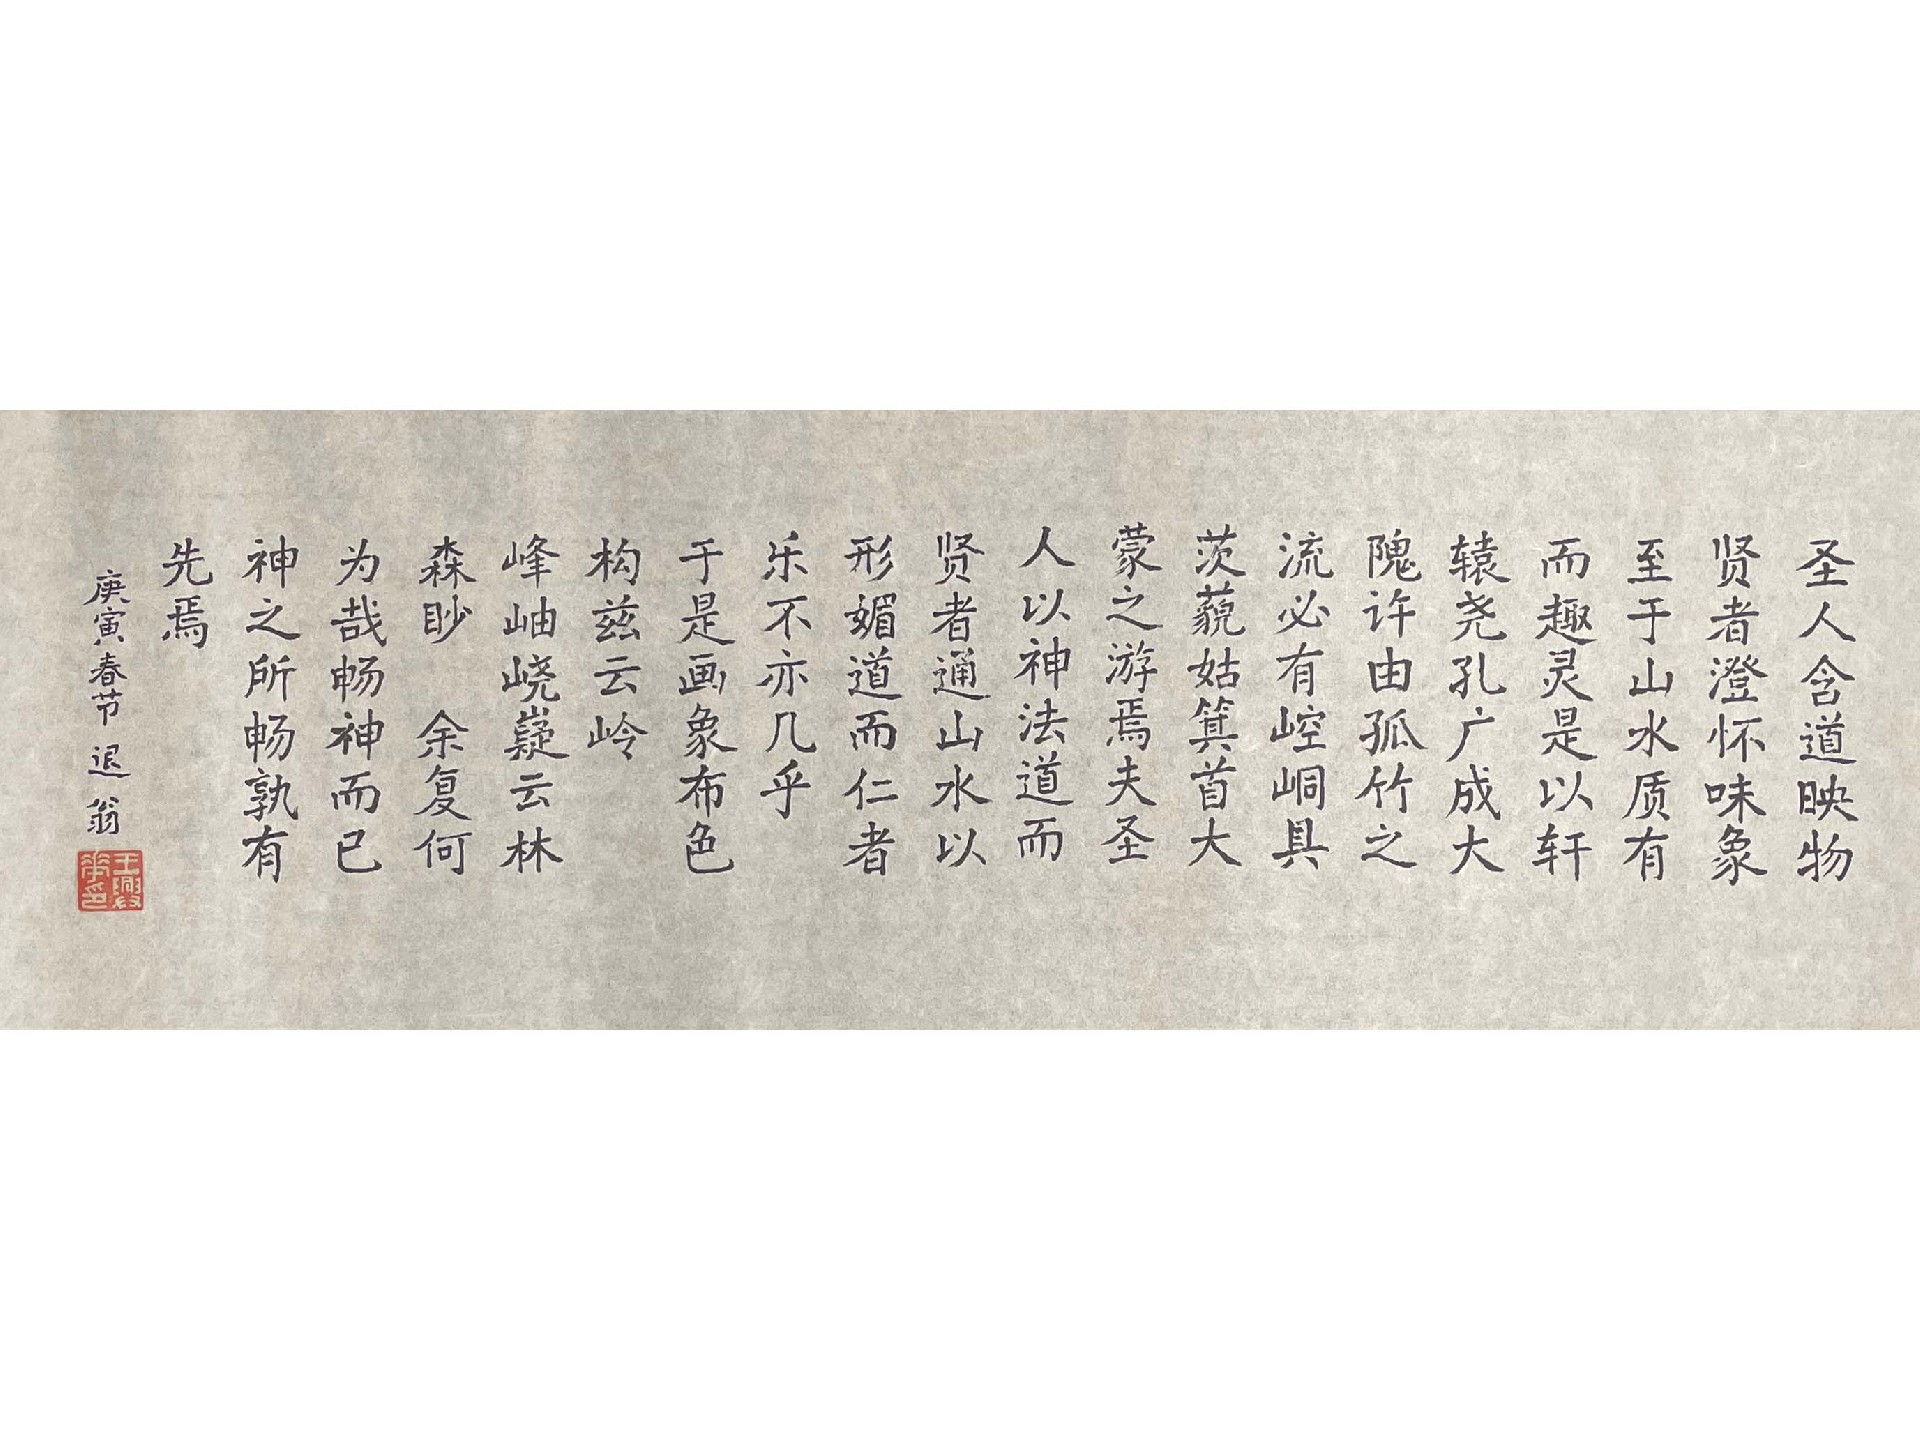 圣人含道映物
贤者澄怀味象
至于山水质有
而趣灵是以轩
辕尧孔广成大
隗许由孤竹之
流必有崆峒具
茨藐姑箕首大
蒙之游焉夫圣
人以神法道而
贤者通山水以
形媚道而仁者
乐不亦几乎
于是画象布色
构兹云岭
峰岫峣嶷云林
森眇 余复何
为哉畅神而已
神之所畅孰有
先焉
庚寅春节 退翁
王兴华印